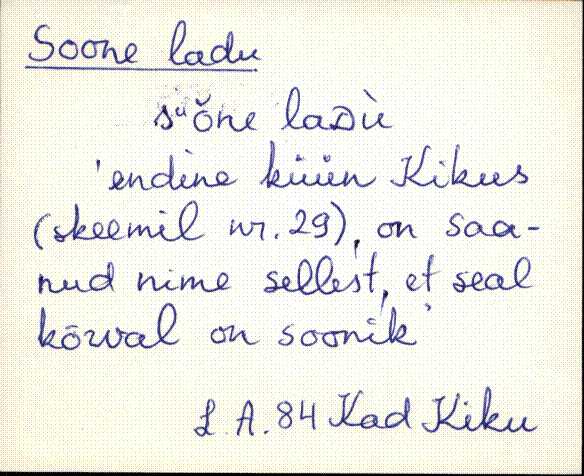 Soone ladu
sᵘŏne laDù
'endine küün Kikus
(skeemil nr. 29), on saa-
nud nime sellest, et seal
kõrval on soonik'
L. A. 84 Kad Kiku